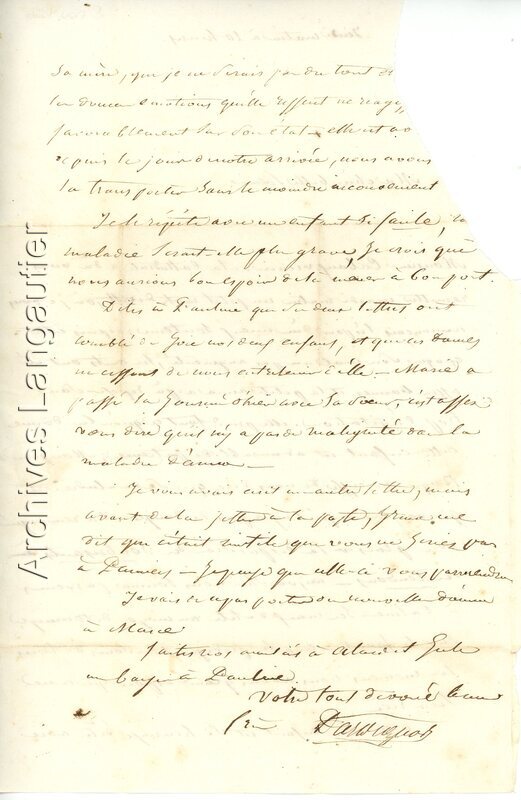 sa mère, que je ne serais pas du tout
les douces émotions qu'elle ressent ne
favorablement sur son état – elle est
depuis le jour de notre arrivée, nous avons
la transporter sans le moindre inconvénient
Je le répète avec un enfant si faible, la
maladie serait-elle plus grave, je crois que
nous aurions bon espoir de la mener à bon port.
Dites à Pauline que ses deux lettres ont
comblé de joie nos deux enfans, et que ces dames
ne cessent de nous entretenir d'elle – Marie a
passé la journée d'hier avec sa soeur, c'est assez
vous dire qu'il n'y a pas de malignité dans la
maladie d'anna –
Je vous avais écrit une autre lettre, mais
avant de la jetter à la poste, on me
dit que c'était inutile que vous ne seriez pas
à – je pense que celle-ci vous parviendra
Je vais de ce pas porter des nouvelles d'anna
à Marie
faites nos amitiés à et
un baiser à Pauline.
Votre tout dévoué beau
frère
Archives Langautier